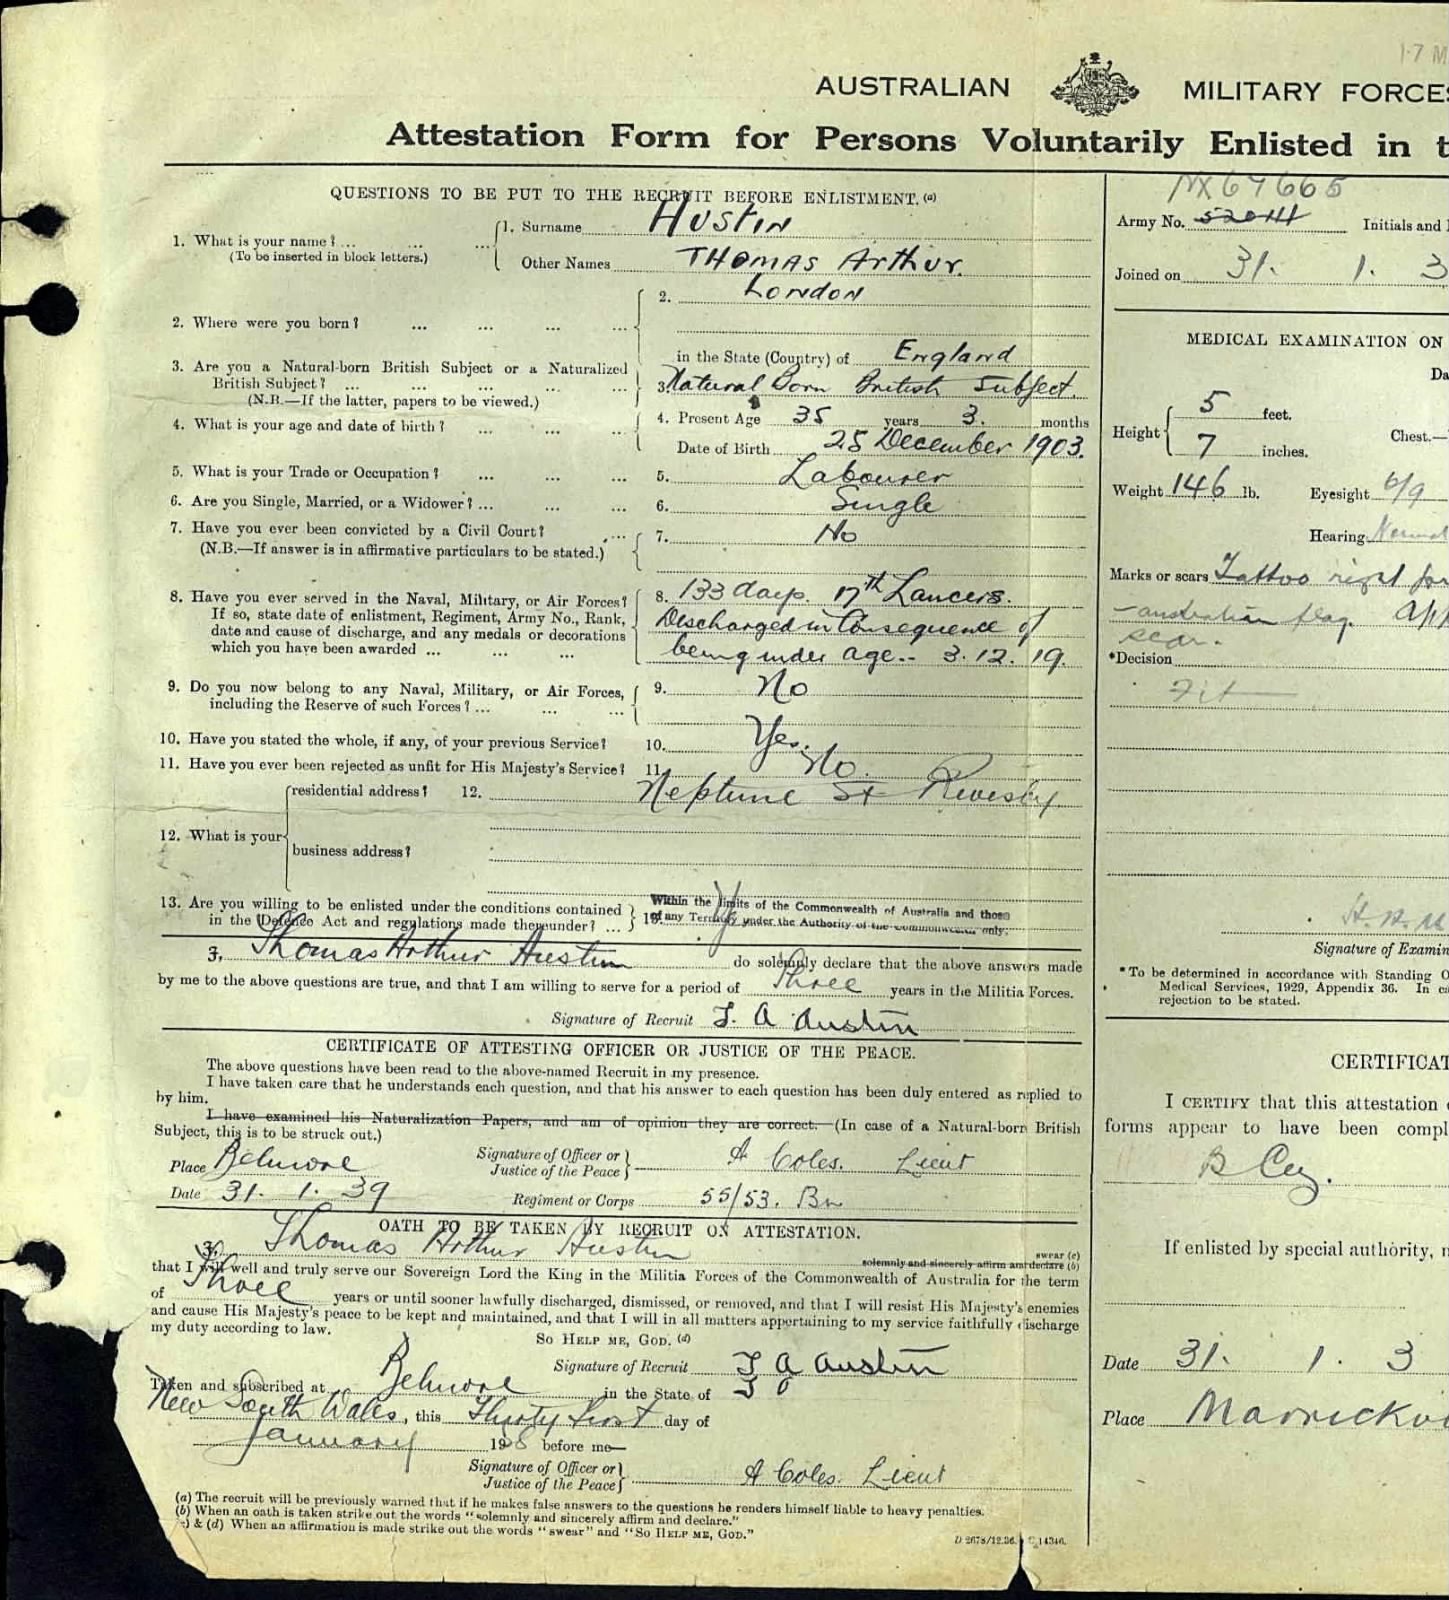 17 M
AUSTRALIAN MILITARY FORCES
Attestation Form for Persons Voluntarily Enlisted in t
QUESTIONS TO BE PUT TO THE RECRUIT BEFORE ENLISTMENT. (a)
1. What is your name? ... ... ...
(To be inserted in block letters.)
1. Surname AUSTIN
Other Names THOMAS Arthur.
2. Where were you born? ... ... ... ...
2. London
in the State (Country) of England
3. Are you a Natural-born British Subject or a Naturalized
British Subject? ... ... ... ...
(N.B.—If the latter, papers to be viewed.)
3. Natural Born British Subject.
4. What is your age and date of birth? ... ... ...
4. Present Age 35 years 3. months
Date of Birth 25 December 1903.
5. What is your Trade or Occupation? ... ... ... 5. Labourer
6. Are you Single, Married, or a Widower? ... ... ... 6. Single
7. Have you ever been convicted by a Civil Court? ...
(N.B.—If answer is in affirmative particulars to be stated.)
7. No
8. Have you ever served in the Naval, Military, or Air Forces?
If so, state date of enlistment, Regiment, Army No., Rank,
date and cause of discharge, and any medals or decorations
which you have been awarded ... ... ...
8. 133 days. 17th Lancers.
Discharged in Consequence of
being under age.. 3.12.19.
9. Do you now belong to any Naval, Military, or Air Forces,
including the Reserve of such Forces? ... ... ...
9. No
10. Have you stated the whole, if any, of your previous Service? 10. Yes.
11. Have you ever been rejected as unfit for His Majesty's Service? 11. No.
12. What is your
residential address? 12. Neptune St Revesby
business address?
13. Are you willing to be enlisted under the conditions contained
in the Defence Act and regulations made thereunder? ...
13. Within the limits of the Commonwealth of Australia and those
of any Territory under the Authority of the Commonwealth only.
Thomas Arthur Austin do solemnly declare that the above answers made
by me to the above questions are true, and that I am willing to serve for a period of Three years in the Militia Forces.
Signature of Recruit T. A Austin
CERTIFICATE OF ATTESTING OFFICER OR JUSTICE OF THE PEACE.
The above questions have been read to the above-named Recruit in my presence.
I have taken care that he understands each question, and that his answer to each question has been duly entered as replied to
by him.
I have examined his Naturalization Papers, and am of opinion they are correct. (In case of a Natural-born British
Subject, this is to be struck out.)
Place Belmore
Signature of Officer or
Justice of the Peace
A Coles. Lieut
Date 31. 1. 39 Regiment or Corps 55/53. Bn
OATH TO BE TAKEN BY RECRUIT ON ATTESTATION.
Thomas Arthur Austin swear (c)
solemnly and sincerely affirm and declare (b)
that I will well and truly serve our Sovereign Lord the King in the Militia Forces of the Commonwealth of Australia for the term
of Three years or until sooner lawfully discharged, dismissed, or removed, and that I will resist His Majesty's enemies
and cause His Majesty's peace to be kept and maintained, and that I will in all matters appertaining to my service faithfully discharge
my duty according to law.
SO HELP ME, GOD. (d)
Signature of Recruit T A Austin
Taken and subscribed at Belmore in the State of
New South Wales, this Thirty first day of
January 19 before me—
Signature of Officer or
Justice of the Peace
A Coles. Lieut
(a) The recruit will be previously warned that if he makes false answers to the questions he renders himself liable to heavy penalties.
(b) When an oath is taken strike out the words "solemnly and sincerely affirm and declare."
(c) & (d) When an affirmation is made strike out the words "swear" and "SO HELP ME, GOD."
D 2678/12.36. C.14346.
NX67665
Army No. Initials and
Joined on 31. 1. 3
MEDICAL EXAMINATION ON
Da
Height 5 feet.
7 inches.
Chest.—
Weight 146 lb. Eyesight 6/9
Hearing Normal
Marks or scars Tattoo right for
—australian flag. App
scar.
*Decision
Fit
Signature of Examin
* To be determined in accordance with Standing O
Medical Services, 1929, Appendix 36. In ca
rejection to be stated.
CERTIFICAT
I CERTIFY that this attestation
forms appear to have been compl
If enlisted by special authority, n
Date 31. 1. 3
Place Marrickvi